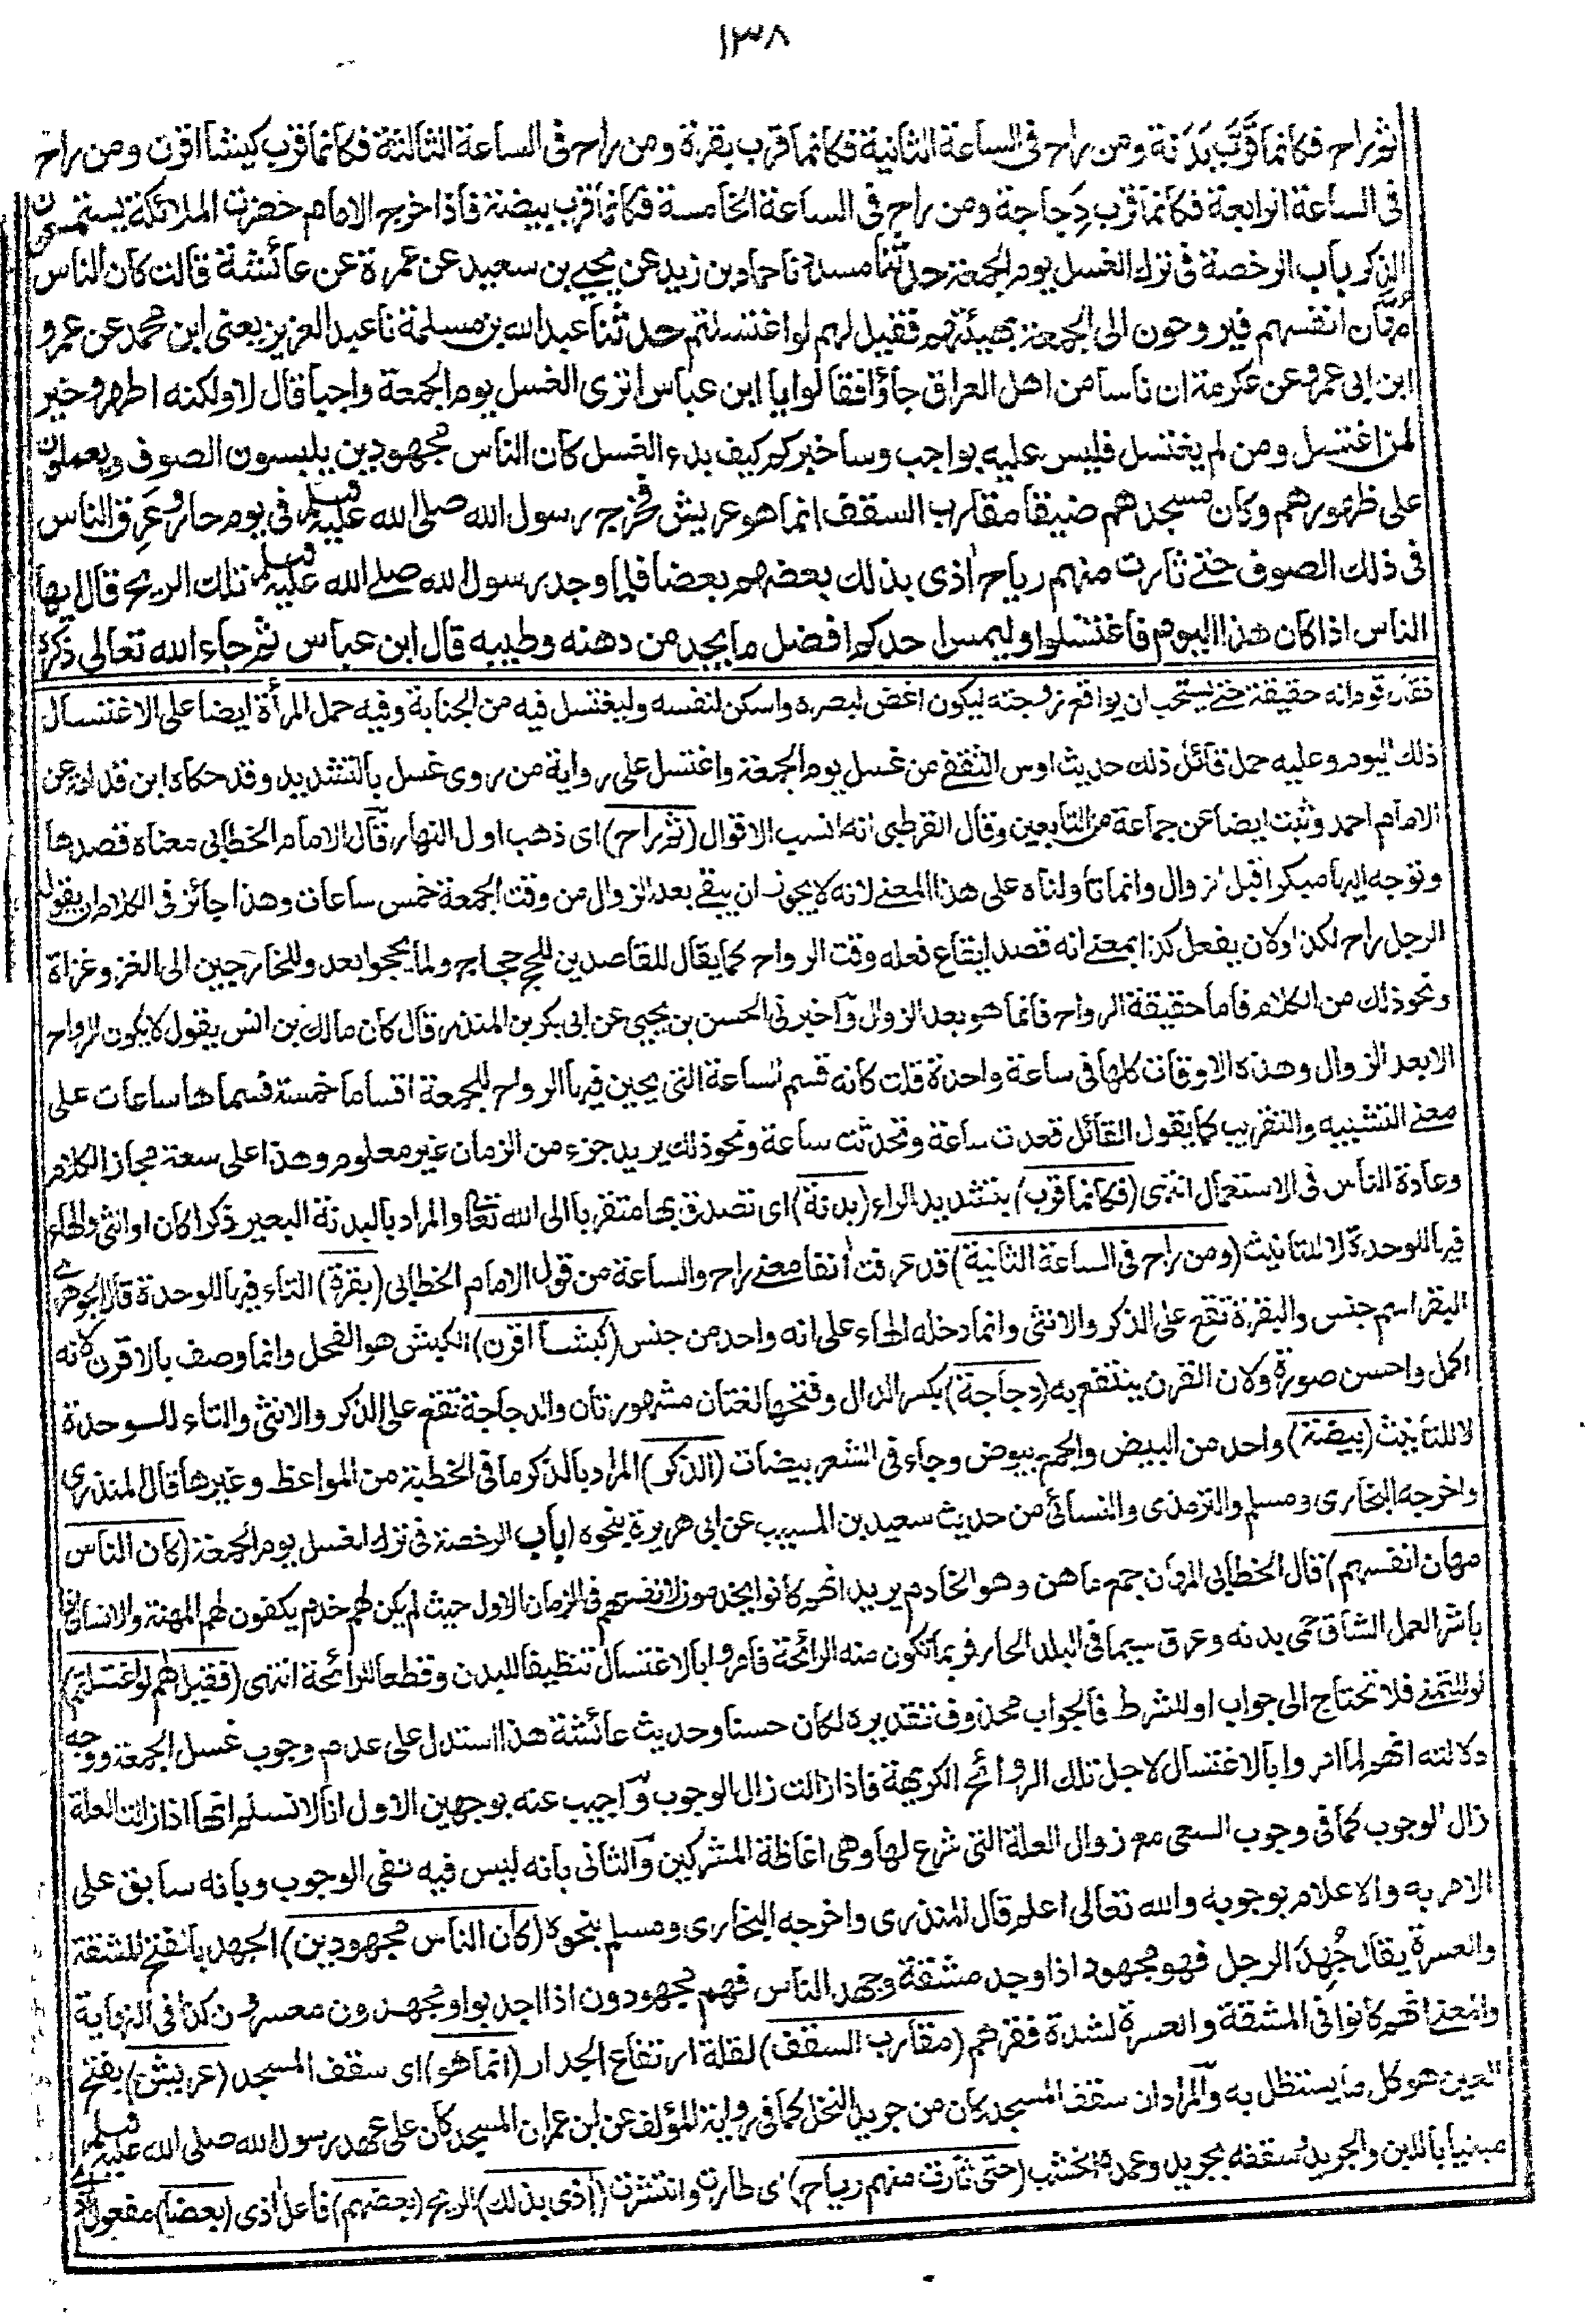 ١٣٨
ثم راح فكانما قَرَّبَ بَدَنة ومن راح فى الساعة الثانية فكانما قرب بقرة ومن راح فى الساعة الثالثة فكانما قرب كبشا اقرن ومن راح
فى الساعة الرابعة فكانما قرب دِجاجة ومن راح فى الساعة الخامسة فكانما قرب بيضة فاذا خرج الامام حضرت الملائكة يستمعون
الذكر باب الرخصة فى ترك الغسل يوم الجمعة حدثنا مسدد نا حماد بن زيد عن يحيى بن سعيد عن عمرة عن عائشة قالت كان الناس
مُهّان انفسهم فيروحون الى الجمعة بهيئتهم فقيل لهم لو اغتسلتم حدثنا عبد الله بن مسلمة نا عبد العزيز يعنى ابن محمد عن عمرو
ابن ابى عمرو عن عكرمة ان ناسا من اهل العراق جاؤا فقالوا يا ابن عباس اترى الغسل يوم الجمعة واجبا قال لا ولكنه اطهر وخير
لمن اغتسل ومن لم يغتسل فليس عليه بواجب وساخبركم كيف بدء الغسل كان الناس مجهودين يلبسون الصوف ويعملون
على ظهورهم وكان مسجدهم ضيقا مقارب السقف انما هو عريش فخرج رسول الله صلى الله عليه وسلم فى يوم حار وعَرِق الناس
فى ذلك الصوف حتى ثارت منهم رياح اذى بذلك بعضهم بعضا فلما وجد رسول الله صلى الله عليه وسلم تلك الريح قال ايها
الناس اذا كان هذا اليوم فاغتسلوا وليمس احدكم افضل ما يجد من دهنه وطيبه قال ابن عباس ثم جاء الله تعالى ذكره
فقال قوم انه حقيقة حتى يستحب ان يواقع زوجته ليكون اغض لبصره واسكن لنفسه وليغتسل فيه من الجنابة وفيه حمل المرأة ايضا على الاغتسال
ذلك اليوم وعليه حمل قائل ذلك حديث اوس الثقفى من غسل يوم الجمعة واغتسل على رواية من روى غسل بالتشديد وقد حكاه ابن قدامة عن
الامام احمد وثبت ايضا عن جماعة من التابعين وقال القرطبى انه انسب الاقوال (ثم راح) اى ذهب اول النهار قال الامام الخطابى معناه قصدها
وتوجه اليها مبكرا قبل الزوال وانما تاولناه على هذا المعنى لانه لا يجوز ان يبقى بعد الزوال من وقت الجمعة خمس ساعات وهذا جائز فى الكلام ان يقول
الرجل راح لكذا ولان يفعل كذا بمعنى انه قصد ايقاع فعله وقت الرواح كما يقال للقاصدين للحج حجاج ولما يحجوا بعد وللخارجين الى الغزو غزاة
ونحو ذلك من الكلام فاما حقيقة الرواح فانما هو بعد الزوال واخبرنى الحسن بن يحيى عن ابى بكر بن المنذر قال كان مالك بن انس يقول لا يكون الرواح
الا بعد الزوال وهذه الاوقات كلها فى ساعة واحدة قلت كانه قسم الساعة التى يحين فيها الرواح للجمعة اقساما خمسة فسماها ساعات على
معنى التشبيه والتقريب كما يقول القائل قعدت ساعة وتحدثت ساعة ونحو ذلك يريد جزء من الزمان غير معلوم وهذا على سعة مجاز الكلام
وعادة الناس فى الاستعمال انتهى (فكانما قرب) بتشديد الراء (بدنة) اى تصدق بها متقربا الى الله تعالى والمراد بالبدنة البعير ذكرا كان او انثى والهاء
فيها للوحدة لا للتانيث (ومن راح فى الساعة الثانية) قد عرفت أنفا معنى راح والساعة من قول الامام الخطابى (بقرة) التاء فيها للوحدة قال الجوهرى
البقر اسم جنس والبقرة تقع على الذكر والانثى وانما دخله الهاء على انه واحد من جنس (كبشا اقرن) الكبش هو الفحل وانما وصف بالاقرن لانه
اكمل واحسن صورة ولان القرن ينتفع به (دجاجة) بكسر الدال وفتحها لغتان مشهورتان والدجاجة تقع على الذكر والانثى والتاء للوحدة
لا للتأنيث (بيضة) واحد من البيض والجمع بيوض وجاء فى الشعر بيضات (الذكر) المراد بالذكر ما فى الخطبة من المواعظ وغيرها قال المنذرى
واخرجه البخارى ومسلم والترمذى والنسائى من حديث سعيد بن المسيب عن ابى هريرة بنحوه (باب الرخصة فى ترك الغسل يوم الجمعة (كان الناس
مهان انفسهم) قال الخطابى المهان جمع ماهن وهو الخادم يريد انهم كانوا يخدمون لانفسهم فى الزمان الاول حيث لم يكن لهم خدم يكفون لهم المهنة والانسان اذا
باشر العمل الشاق حمى بدنه وعرق سيما فى البلد الحار فربما تكون منه الرائحة فامروا بالاغتسال تنظيفا للبدن وقطعا للرائحة انتهى (فقيل لهم لو اغتسلتم)
لو للتمنى فلا تحتاج الى جواب او للشرط فالجواب محذوف تقديره لكان حسنا وحديث عائشة هذا استدل على عدم وجوب غسل الجمعة ووجه
دلالته انهم لما امروا بالاغتسال لاجل تلك الروائح الكريهة فاذا زالت زال الوجوب واجيب عنه بوجهين الاول انا لا نسلم انها اذا زالت العلة
زال الوجوب كما فى وجوب السعى مع زوال العلة التى شرع لها وهى اغاظة المشركين والثانى بانه ليس فيه نفى الوجوب وبانه سابق على
الامر به والاعلام بوجوبه والله تعالى اعلم قال المنذرى واخرجه البخارى ومسلم بنحوه (كان الناس مجهودين) الجهد بالفتح المشقة
والعسرة يقال جُهِدَ الرجل فهو مجهود اذا وجد مشقة وجهد الناس فهم مجهودون اذا اجدبوا ومجهدون معسرون كذا فى النهاية
والمعنى انهم كانوا فى المشقة والعسرة لشدة فقرهم (مقارب السقف) لقلة ارتفاع الجدار (انما هو) اى سقف المسجد (عريش) بفتح
العين هو كل ما يستظل به والمراد ان سقف المسجد كان من جريد النخل كما فى رواية للمؤلف عن ابن عمر ان المسجد كان على عهد رسول الله صلى الله عليه وسلم
مبنيا باللبن والجريد وسقفه بجريد وعمده الخشب (حتى ثارت منهم رياح) اى طارت وانتشرت (اذى بذلك) الريح (بعضهم) فاعل اذى (بعضا) مفعول